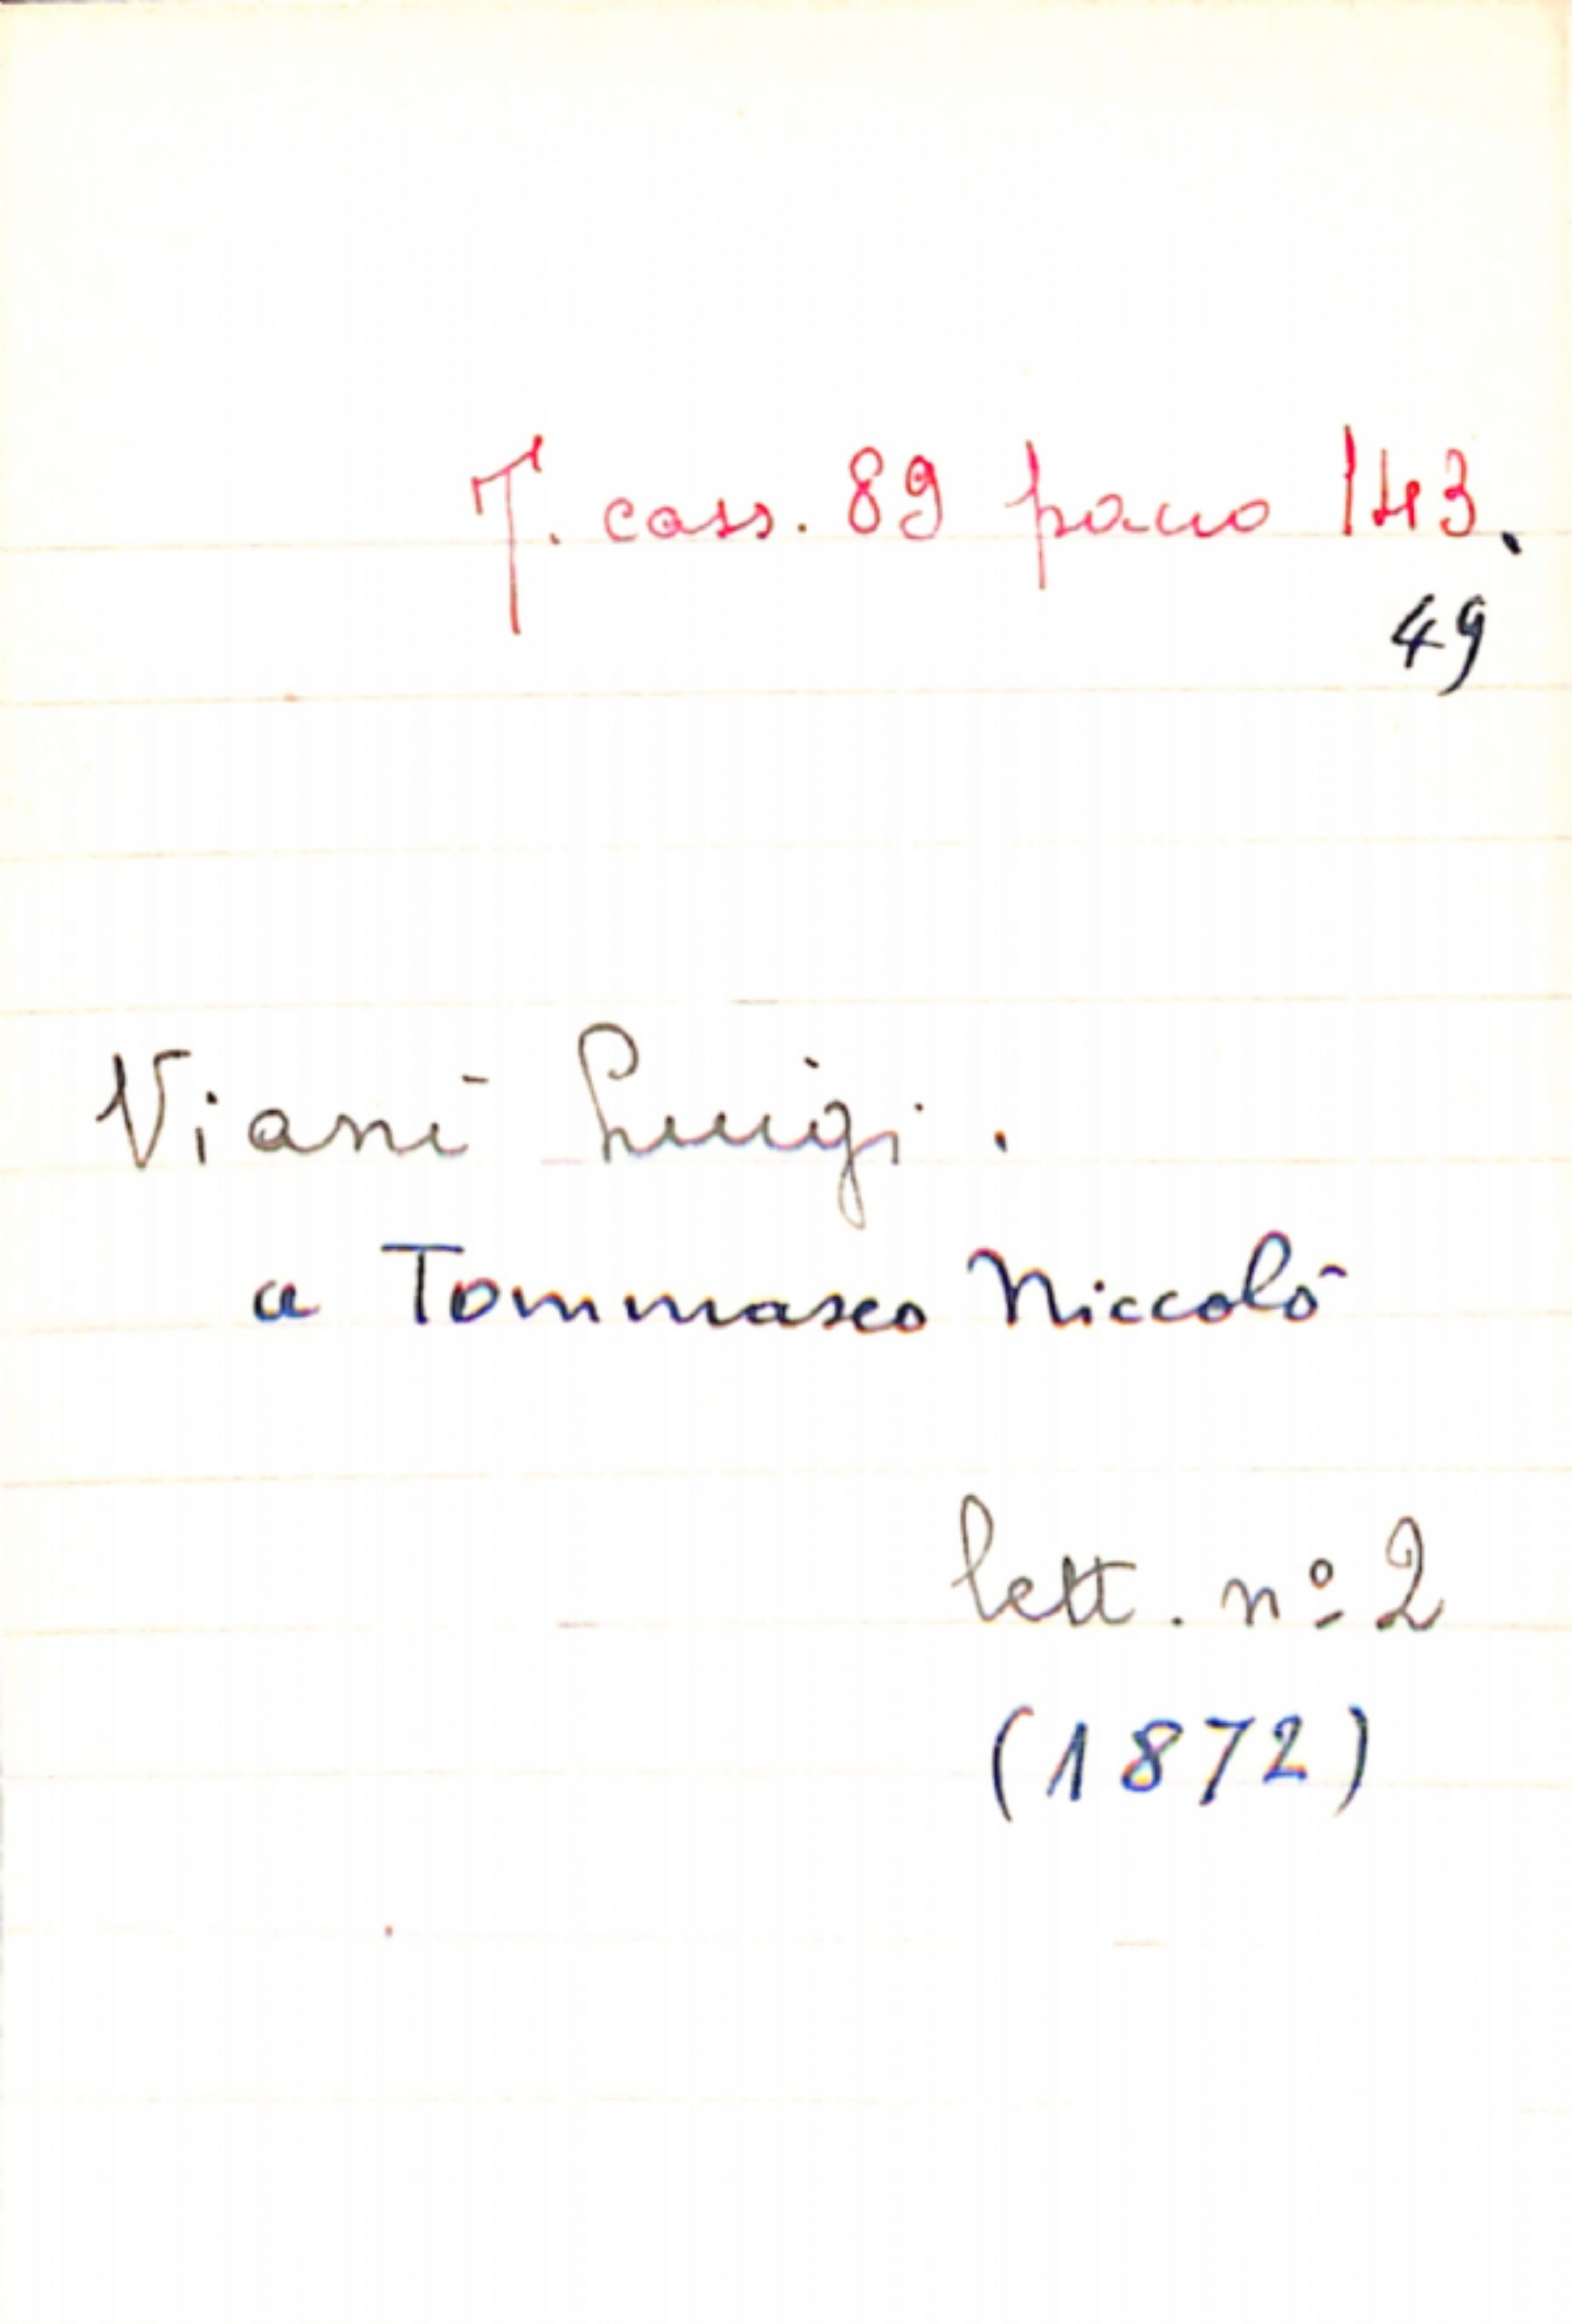 T. cass. 89 pacco 143.
49
Viani Luigi.
a Tommaseo Niccolò
lett. nº 2
(1872)